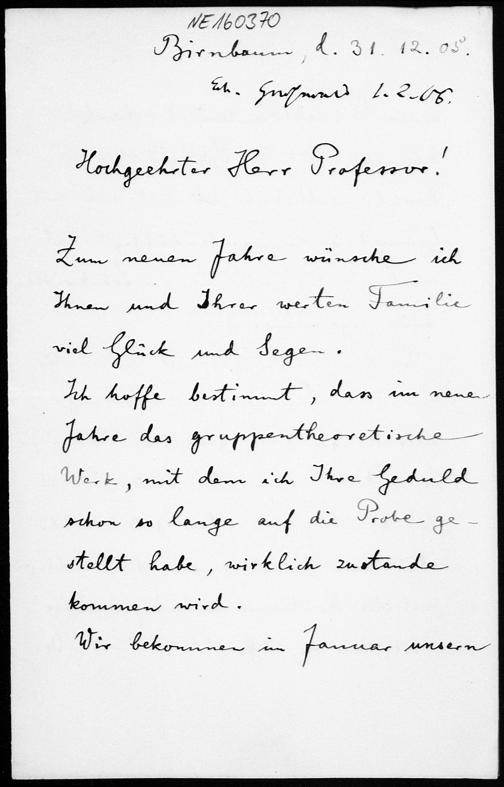 NE160370
Birnbaum, d. 31. 12. 05.
1.2.06.
Hochgeehrter Herr Professor!
Zum neuen Jahre wünsche ich
Ihnen und Ihrer werten Familie
viel Glück und Segen.
Ich hoffe bestimmt, dass im neuen
Jahre das gruppentheoretische
Werk, mit dem ich Ihre Geduld
schon so lange auf die Probe ge-
stellt habe, wirklich zustande
kommen wird.
Wir bekommen im Januar unsern